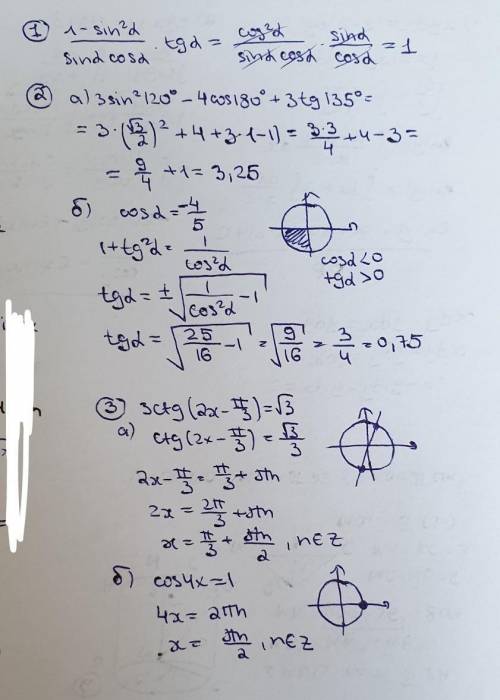 ① (1-sin²α)/(sinα cosα) · tgα = cos²α/(sinα cosα) · sinα/cosα = 1
② а) 3sin²120° - 4cos180° + 3tg135° =
= 3·(√3/2)² + 4 + 3·(-1) = 3·3/4 + 4 - 3 =
= 9/4 + 1 = 3,25
б) cosα = -4/5
1+tg²α = 1/cos²α
cosα<0
tgα>0
tgα = ±√(1/cos²α - 1)
tgα = √(25/16 - 1) = √(9/16) = 3/4 = 0,75
③ 3ctg(2x - π/3) = √3
а) ctg(2x - π/3) = √3/3
2x - π/3 = π/3 + πn
2x = 2π/3 + πn
x = π/3 + πn/2, n∈Z
б) cos4x = 1
4x = 2πn
x = πn/2, n∈Z